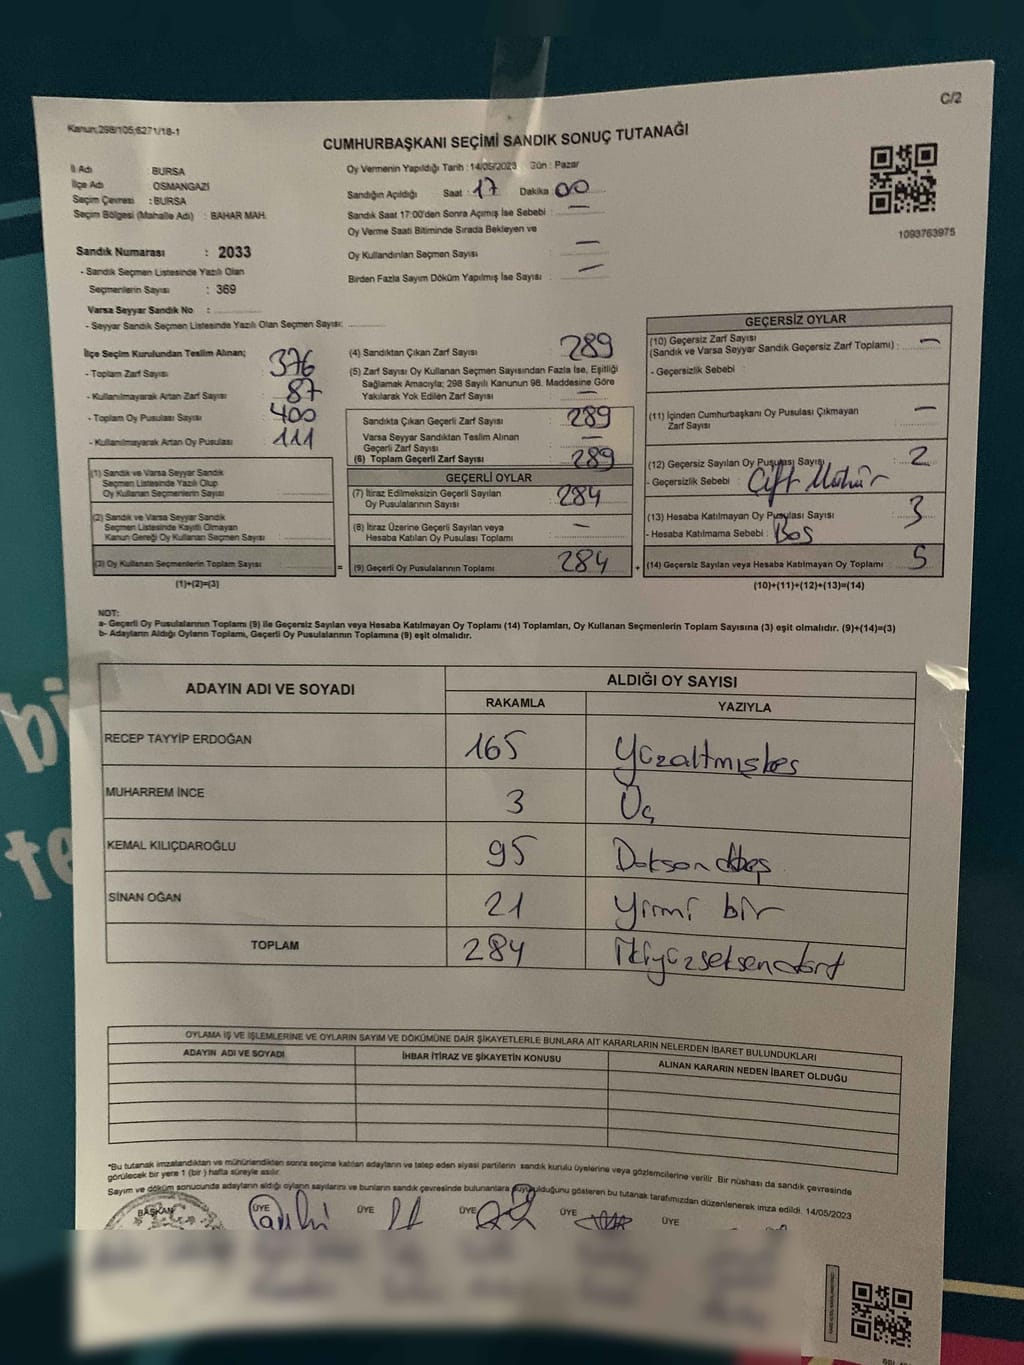 C/2
Kanun;298/105,6271/18-1
CUMHURBAŞKANI SEÇİMİ SANDIK SONUÇ TUTANAĞI
İl Adı BURSA
İlçe Adı OSMANGAZİ
Seçim Çevresi : BURSA
Seçim Bölgesi (Mahalle Adı) : BAHAR MAH.
Sandık Numarası : 2033
- Sandık Seçmen Listesinde Yazılı Olan
Seçmenlerin Sayısı : 369
Varsa Seyyar Sandık No :
- Seyyar Sandık Seçmen Listesinde Yazılı Olan Seçmen Sayısı:
Oy Vermenin Yapıldığı Tarih : 14/05/2023 Gün : Pazar
Sandığın Açıldığı Saat : 17 Dakika 00
Sandık Saat 17:00'den Sonra Açılmış İse Sebebi : —
Oy Verme Saati Bitiminde Sırada Bekleyen ve
Oy Kullandırılan Seçmen Sayısı : —
Birden Fazla Sayım Döküm Yapılmış İse Sayısı : —
1093763975
İlçe Seçim Kurulundan Teslim Alınan;
- Toplam Zarf Sayısı 376
- Kullanılmayarak Artan Zarf Sayısı : 87
- Toplam Oy Pusulası Sayısı 400
- Kullanılmayarak Artan Oy Pusulası 111
(1) Sandık ve Varsa Seyyar Sandık
Seçmen Listesinde Yazılı Olup
Oy Kullanan Seçmenlerin Sayısı :
(2) Sandık ve Varsa Seyyar Sandık
Seçmen Listesinde Kayıtlı Olmayan
Kanun Gereği Oy Kullanan Seçmen Sayısı :
(3) Oy Kullanan Seçmenlerin Toplam Sayısı :
(1)+(2)=(3)
=
(4) Sandıktan Çıkan Zarf Sayısı : 289
(5) Zarf Sayısı Oy Kullanan Seçmen Sayısından Fazla İse, Eşitliği
Sağlamak Amacıyla; 298 Sayılı Kanunun 98. Maddesine Göre
Yakılarak Yok Edilen Zarf Sayısı : —
Sandıkta Çıkan Geçerli Zarf Sayısı : 289
Varsa Seyyar Sandıktan Teslim Alınan
Geçerli Zarf Sayısı : —
(6) Toplam Geçerli Zarf Sayısı : 289
GEÇERLİ OYLAR
(7) İtiraz Edilmeksizin Geçerli Sayılan
Oy Pusulalarının Sayısı : 284
(8) İtiraz Üzerine Geçerli Sayılan veya
Hesaba Katılan Oy Pusulası Toplamı : —
(9) Geçerli Oy Pusulalarının Toplamı : 284
+
GEÇERSİZ OYLAR
(10) Geçersiz Zarf Sayısı
(Sandık ve Varsa Seyyar Sandık Geçersiz Zarf Toplamı) : —
- Geçersizlik Sebebi :
(11) İçinden Cumhurbaşkanı Oy Pusulası Çıkmayan
Zarf Sayısı —
(12) Geçersiz Sayılan Oy Pusulası Sayısı : 2
- Geçersizlik Sebebi : Çift Mühür
(13) Hesaba Katılmayan Oy Pusulası Sayısı : 3
- Hesaba Katılmama Sebebi : Boş
(14) Geçersiz Sayılan veya Hesaba Katılmayan Oy Toplamı : 5
(10)+(11)+(12)+(13)=(14)
NOT:
a- Geçerli Oy Pusulalarının Toplamı (9) ile Geçersiz Sayılan veya Hesaba Katılmayan Oy Toplamı (14) Toplamları, Oy Kullanan Seçmenlerin Toplam Sayısına (3) eşit olmalıdır. (9)+(14)=(3)
b- Adayların Aldığı Oyların Toplamı, Geçerli Oy Pusulalarının Toplamına (9) eşit olmalıdır.
ADAYIN ADI VE SOYADI ALDIĞI OY SAYISI
RAKAMLA YAZIYLA
RECEP TAYYİP ERDOĞAN 165 Yüzaltmışbeş
MUHARREM İNCE 3 Üç
KEMAL KILIÇDAROĞLU 95 Doksan beş
SİNAN OĞAN 21 Yirmi bir
TOPLAM 284 İkiyüzseksendört
OYLAMA İŞ VE İŞLEMLERİNE VE OYLARIN SAYIM VE DÖKÜMÜNE DAİR ŞİKAYETLERLE BUNLARA AİT KARARLARIN NELERDEN İBARET BULUNDUKLARI
ADAYIN ADI VE SOYADI İHBAR İTİRAZ VE ŞİKAYETİN KONUSU ALINAN KARARIN NEDEN İBARET OLDUĞU
*Bu tutanak imzalandıktan ve mühürlendikten sonra seçime katılan adayların ve talep eden siyasi partilerin sandık kurulu üyelerine veya gözlemcilerine verilir. Bir nüshası da sandık çevresinde
görülecek bir yere 1 (bir) hafta süreyle asılır.
Sayım ve döküm sonucunda adayların aldığı oyların sayılarını ve bunların sandık çevresinde bulunanlara duyurulduğunu gösteren bu tutanak tarafımızdan düzenlenerek imza edildi. 14/05/2023
BAŞKAN ÜYE ÜYE ÜYE ÜYE ÜYE
bi
te